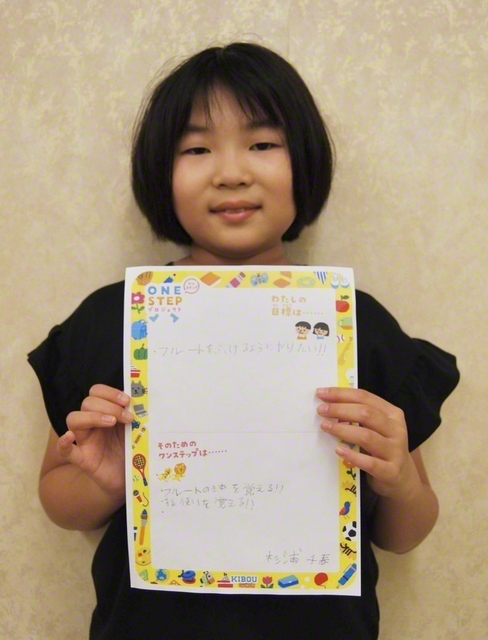 ONE
STEP
プロジェクト
わたしの
目標は……
・フルートをふけるようになりたい!!
そのための
ワンステップは……
・フルートの を覚える!!
・指使いを覚える!!
・
杉浦 千
KIBOU